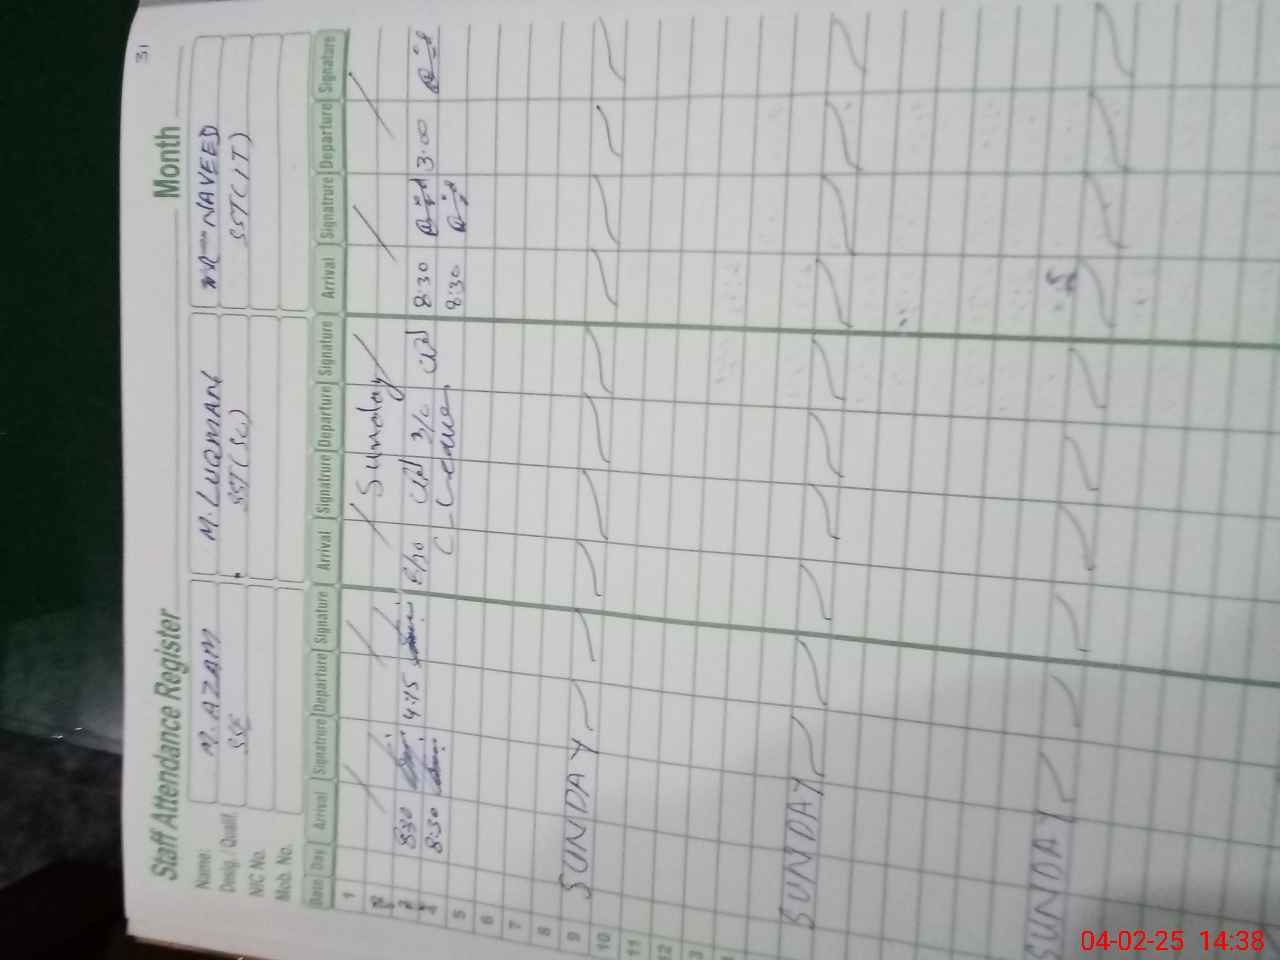 31
Staff Attendance Register Month
Name: M. AZAM M. LUQMAN NAVEED
Desig. / Qualif. SSE SST (SC) SST (IT)
NIC No.
Mob. No.
Date Day Arrival Signatrure Departure Signature Arrival Signatrure Departure Signature Arrival Signatrure Departure Signature
1
2 Sunday
3 8:30 4:15 3/0 8:30 3:00
4 8:30 Leave 8:30
5
6
7
8
9 SUNDAY
10
11
12
13
SUNDAY
SUNDAY
04-02-25 14:38